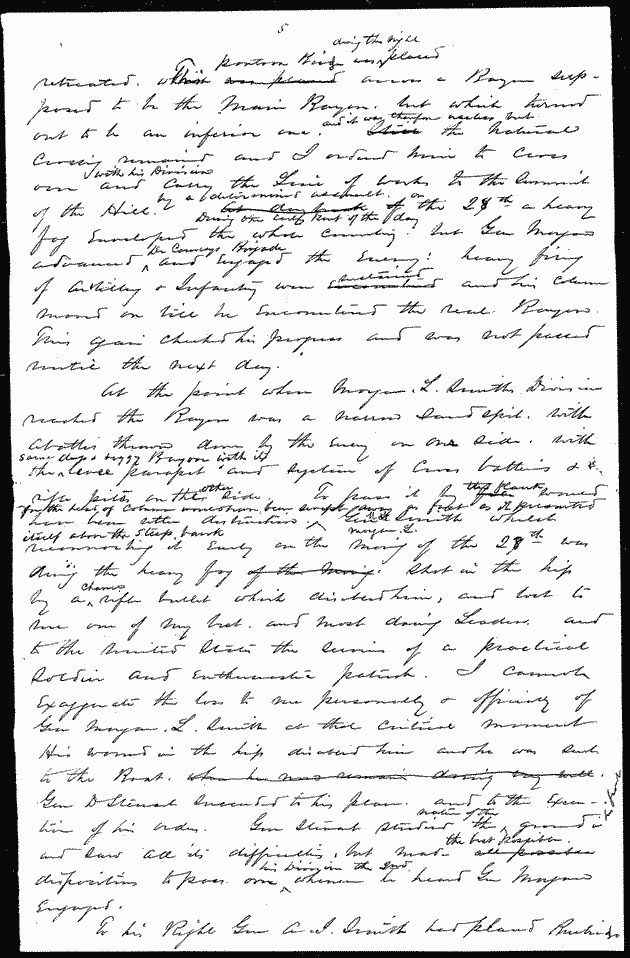 5
during the night
pontoon Bridge was placed
retreated. This was placed across a Bayou sup-
posed to be the Main Bayou. but which turned
out to be an inferior one. and it was therefore useless but Still the natural
Crossing remained and I ordered him to Cross
over with his Division and carry the Line of works to the Summit
of the Hill. by a determined assault. on the 28th a heavy
During the early part of the day
fog Enveloped the whole Country. but Gen Morgan
advanced De Courcys Brigade and Engaged the Enemy: heavy firing
of Artillery & Infantry were sustained and his Column
moved on till he Encountered the real Bayou.
This again checked his progress and was not passed
until the next day.
At the point where Morgan. L. Smiths Division
reached the Bayou was a narrow Sand spit. with
abattis thrown down by the Enemy on our side. with
same deep & boggy Bayou with its
the levee parapet and system of cross batteries & &c.
rifle pits on the other side. To pass it by the flank would
for the head of Column would have been swept away as fast as it presented
have been utter destruction. Gen Smith whilst
itself above the steep bank
Morgan L.
reconnoitring it Early on the morning of the 28th was
during the heavy fog of the Morning. Shot in the hip
by a chance rifle bullet which disabled him, and lost to
me one of my best. and most daring Leaders. and
to the United States the service of a practical
Soldier and Enthusiastic patriot. I cannot
Exaggerate the loss to me personally & officially of
Gen Morgan. L. Smith at that Critical moment
His wound in the hip disabled him and he was sent
to the Boat.
Gen D Stuart Succeeded to his place. and to the Execu-
tion of his orders. Gen Stuart studied the nature of the ground
and saw all its difficulties, but made all possible the best possible
disposition to pass over his Division the 2nd whenever he heard Gen Morgan
Engaged.
To his Right Gen A. J. Smith had placed Burbridge